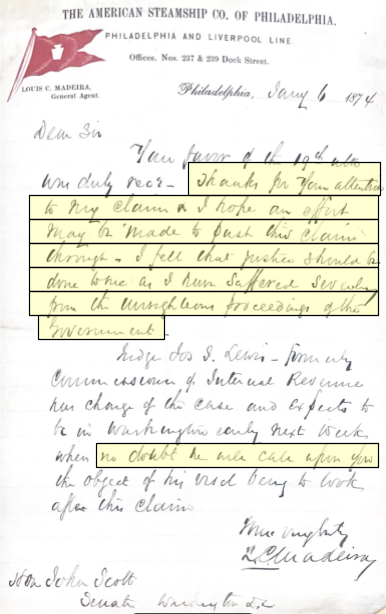 THE AMERICAN STEAMSHIP CO. OF PHILADELPHIA.
PHILADELPHIA AND LIVERPOOL LINE.
Offices, Nos. 237 & 239 Dock Street.
LOUIS C. MADEIRA,
General Agent.
Philadelphia, Jany 6 1874
Dear Sir
Your favor of the 19th ulto
was duly recd - Thanks for your attention
to my claim & I hope an effort
may be made to push this claim
through - I feel that justice should be
done to me as I have suffered severely
from the unrighteous proceedings of the
Government.
Judge Jos J. Lewis - formerly
Commissioner of Internal Revenue
has charge of the case and expects to
be in Washington early next week
when no doubt he will call upon you
the object of his visit being to look
after this claim
Yours
L C Madeira
Hon John Scott
Senate Washington D.C